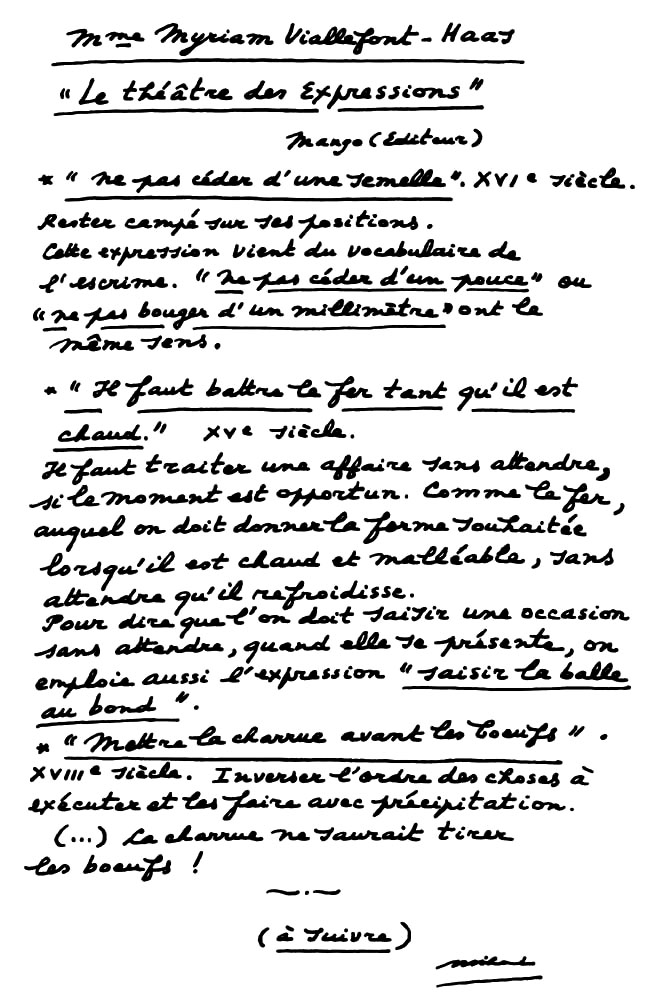 Mme Myriam Viallefont-Haas
"Le théâtre des Expressions"
Mango (Éditeur)
* "Ne pas céder d'une semelle". XVIe siècle.
Rester campé sur ses positions.
Cette expression vient du vocabulaire de
l'escrime. "Ne pas céder d'un pouce" ou
"ne pas bouger d'un millimètre" ont le
même sens.
* "Il faut battre le fer tant qu'il est
chaud." XVe siècle.
Il faut traiter une affaire sans attendre,
si le moment est opportun. Comme le fer,
auquel on doit donner la forme souhaitée
lorsqu'il est chaud et malléable, sans
attendre qu'il refroidisse.
Pour dire que l'on doit saisir une occasion
sans attendre, quand elle se présente, on
emploie aussi l'expression "saisir la balle
au bond".
* "Mettre la charrue avant les boeufs".
XVIIIe siècle. Inverser l'ordre des choses à
exécuter et les faire avec précipitation.
(...) La charrue ne saurait tirer
les boeufs !
(à suivre)